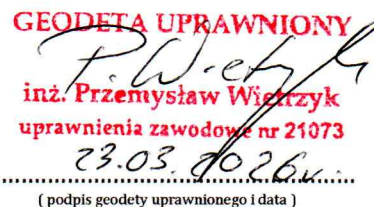 GEODETA UPRAWNIONY
P. Wietrzyk
inż. Przemysław Wietrzyk
uprawnienia zawodowe nr 21073
23.03.2026r.
( podpis geodety uprawnionego i data )